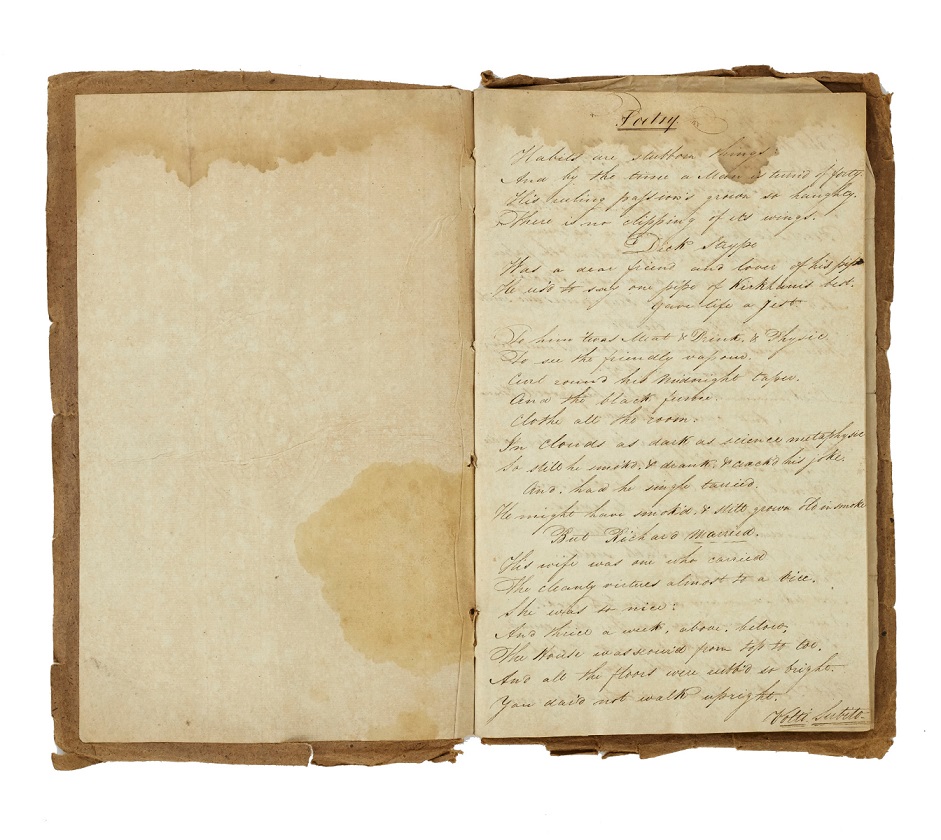 Poetry.
Habits are stubborn things:
And by the time a Man is turn'd of forty.
His ruling passion's grown so haughty.
There is no clipping of its wings.
Dick Strype
Was a dear friend and lover of his pipe
He us'd to say one pipe of Kirkham's best.
Gave life a jest
To him 'twas Meat & Drink, & Physic.
To see the friendly vapour.
Curl round his Midnight taper.
And the black fume
Clothe all the room.
In clouds as dark as science metaphysic
So still he smok'd, & drank, & crack'd his joke.
And, had he single tarried.
He might have smok'd, & still grown old in smoke
But Richard Married.
His wife was one who carried
The cleanly virtues almost to a vice.
She was so nice:
And thrice a week, above, below,
The House was scour'd from top to toe.
And all the floors were rubb'd so bright.
You dar'd not walk upright.
Volti Subito.